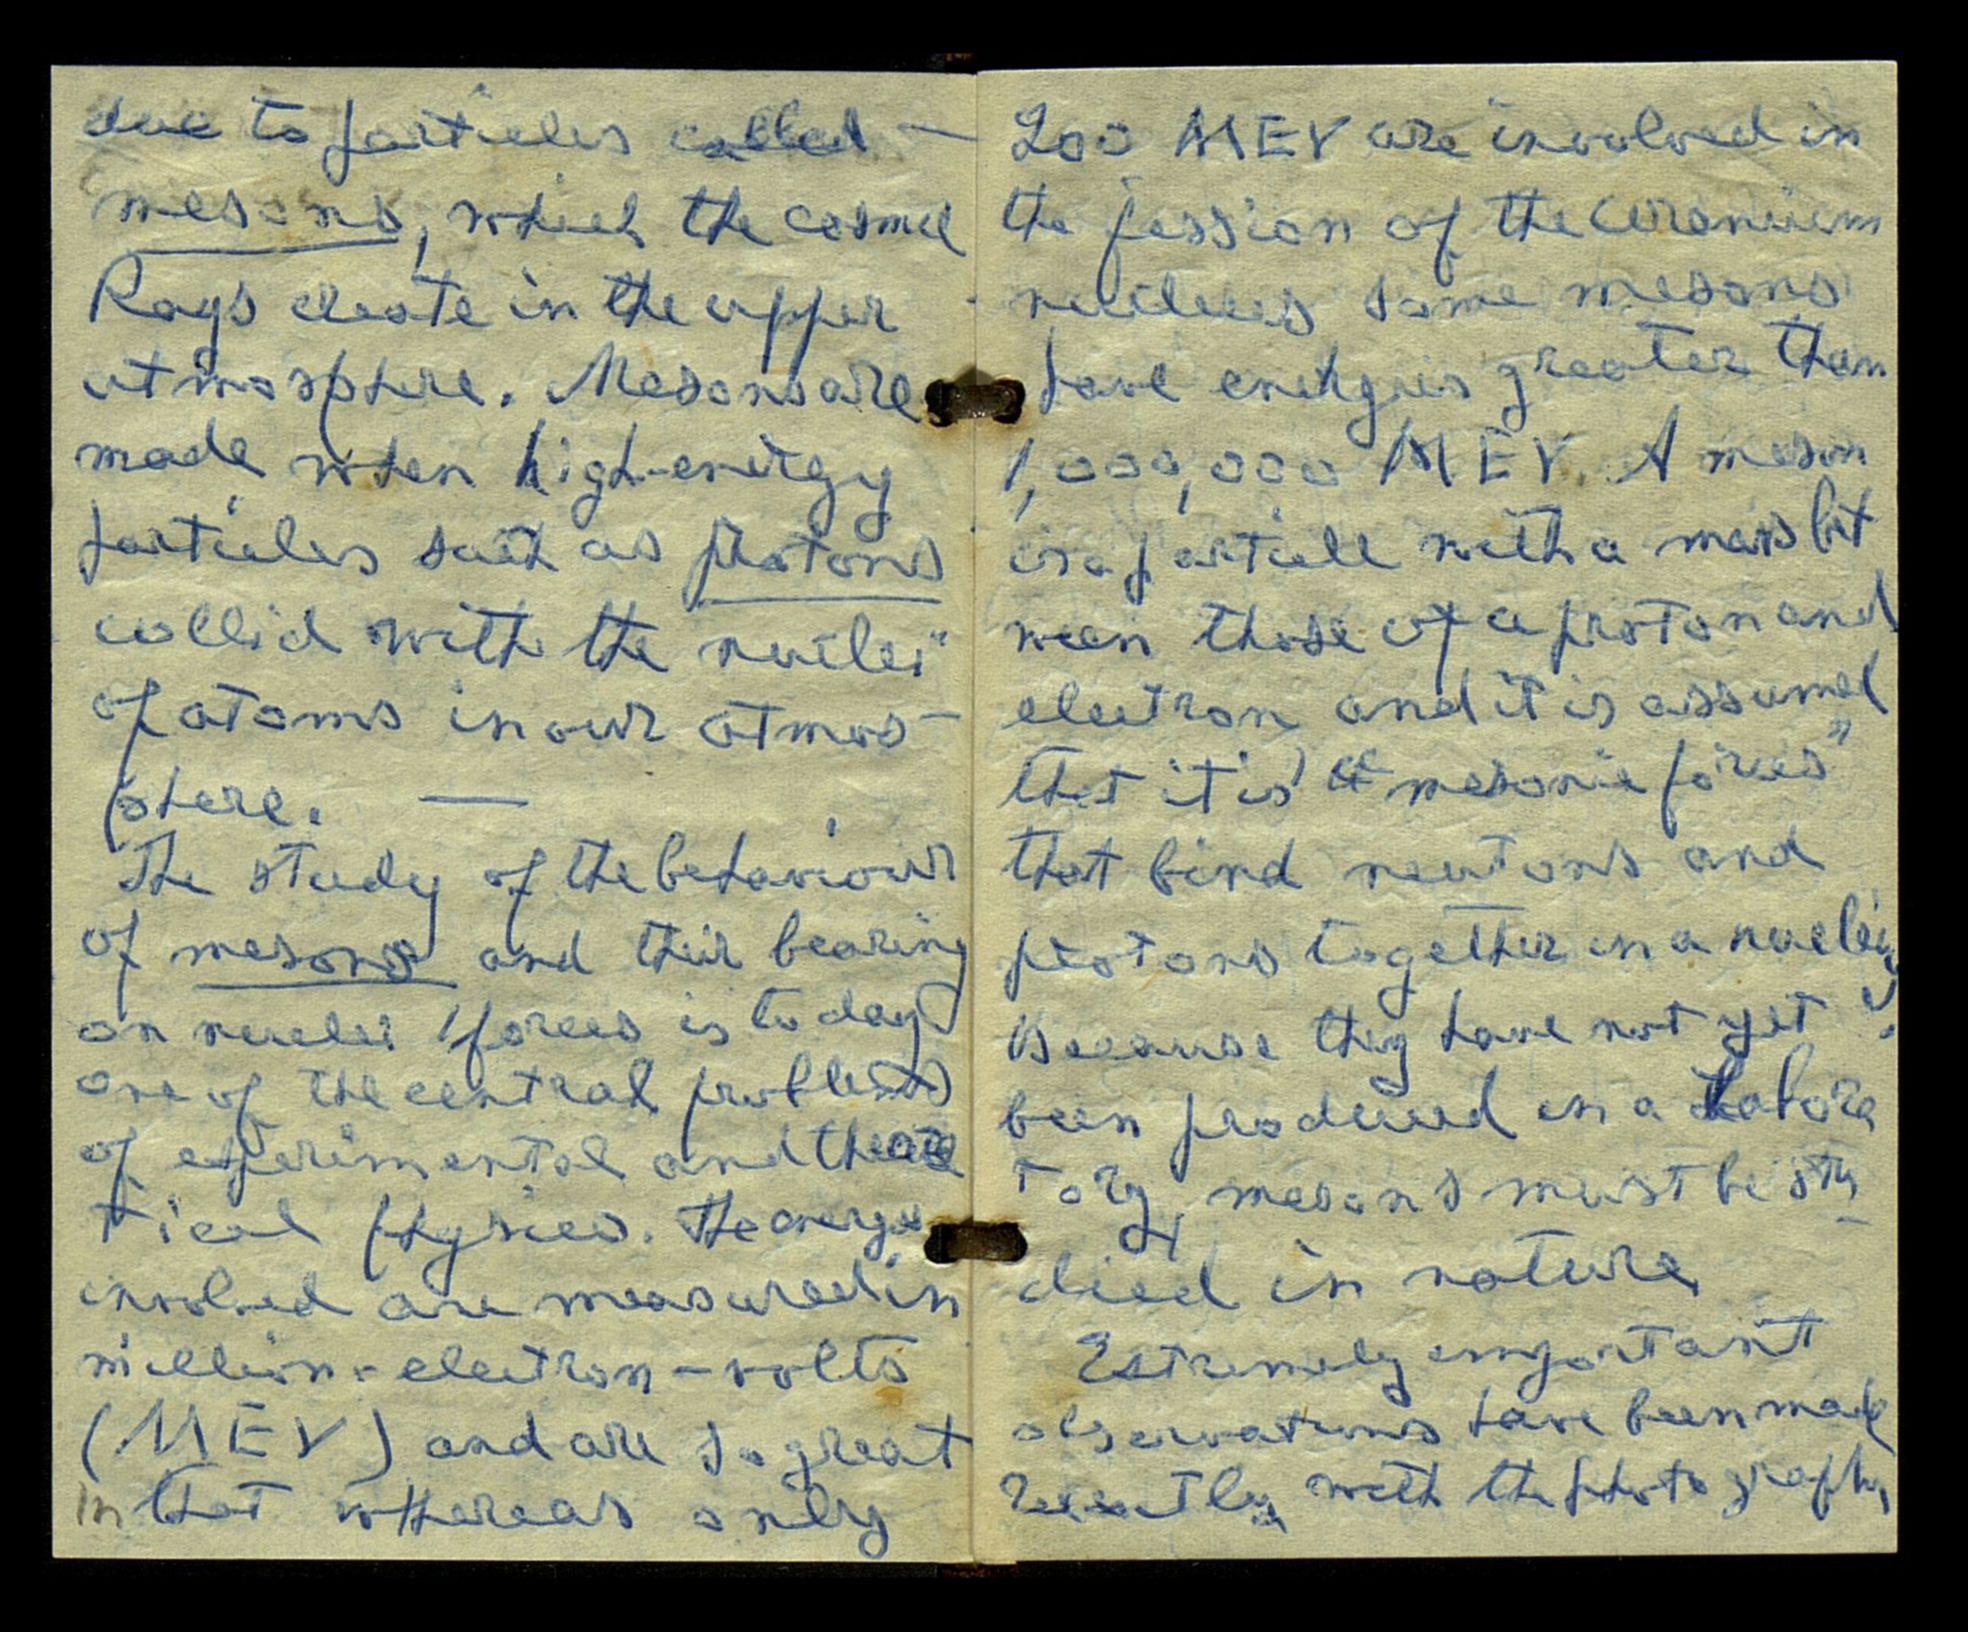 due to particles called —
mesons, which the cosmic
Rays create in the upper
atmosphere. Mesons are
made when high-energy
particles such as protons
collid with the nuclei
of atoms in our atmos-
phere. —
The study of the behaviour
of mesons and their bearing
on nuclei forces is to day
one of the central problems
of experimental and theore
tical physics. The energies
involved are measured in
million-electron-volts
(MEV) and are so great
in that whereas only
200 MEV are involved in
the fission of the uranium
nucleus some mesons
have energies greater than
1,000,000 MEV. A meson
is a particle with a mass bet
ween those of a proton and
electron and it is assumed
that it is "mesonic forces"
that bind neutons and
protons together in a nucleus.
Because they have not yet
been produced in a Labora
tory, mesons must be stu-
died in nature
Extremely important
observations have been made
recently, with the photographic